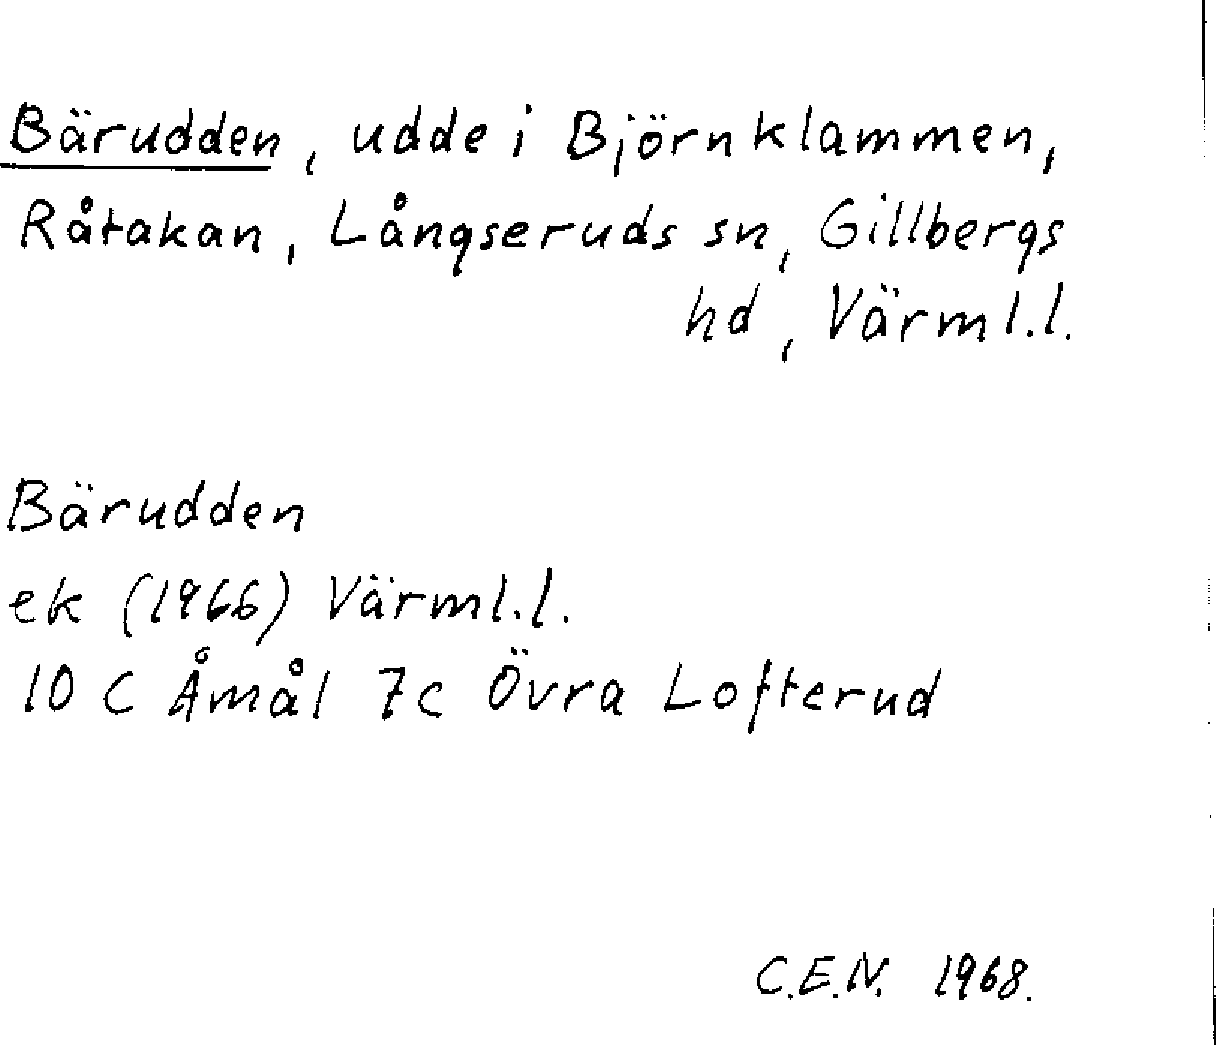 Bärudden, udde i Björnklammen,
Råtakan, Långseruds sn, Gillbergs
hd, Värml.l.
Bärudden
ek (1966) Värml.l.
10 C Åmål 7c Övra Lofterud
C.E.N. 1968.